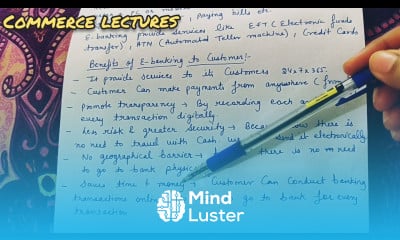 COMMERCE LECTURES
paying bills etc.
E-banking provide services like EFT (Electronic funds
transfer), ATM (Automated Teller machine), Credit Cards
Benefits of E-banking to Customer:-
- It provide services to its Customers 24x7x365.
- Customer can make payments from anywhere (from
- Promote transparency → By recording each
every transaction digitally.
- Less risk & greater security → there is
no need to travel with cash, send it electronically
- No geographical barrier → there is no need
to go to bank
- Saves time & money → Customer Can conduct banking
transactions go to bank for every
transaction
Mind
Luster